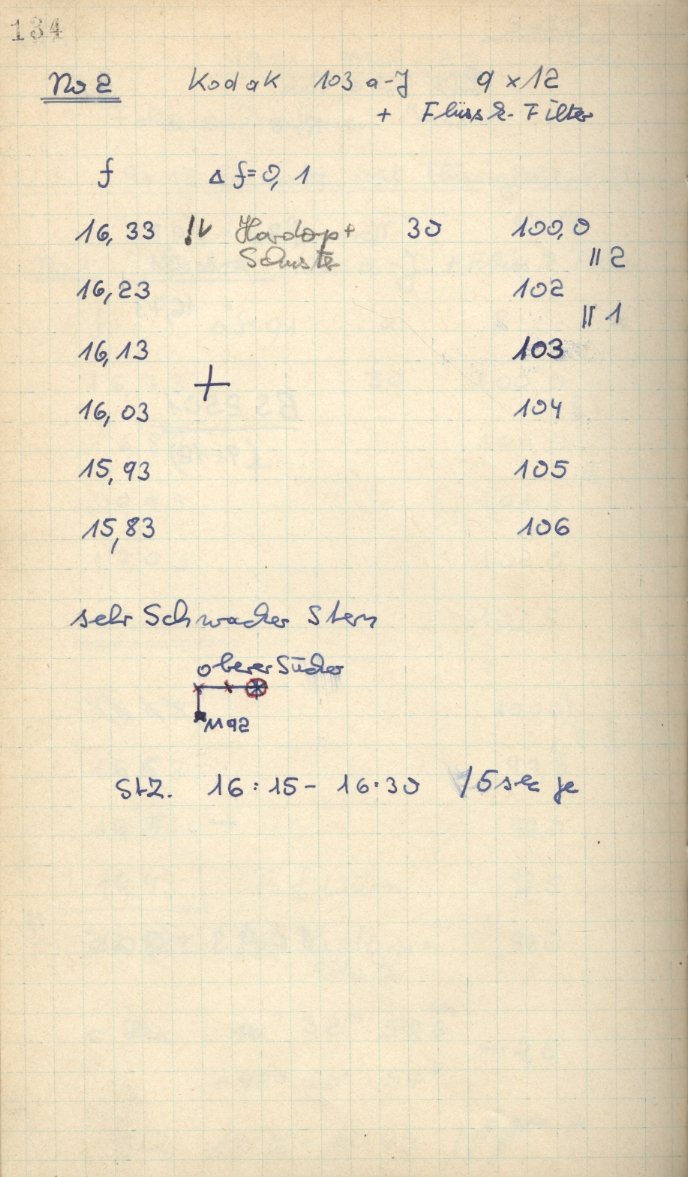 134
No 2 Kodak 103 a-J 9 x 12
+ Flüssk. Filter
f Δf=0,1
16,33 !! + 30 100,0
|| 2
16,23 102
|| 1
16,13 103
+
16,03 104
15,93 105
15,83 106
sehr Schwacher Stern
oberer Sucher
M92
StZ. 16:15 - 16:30 /5sek je